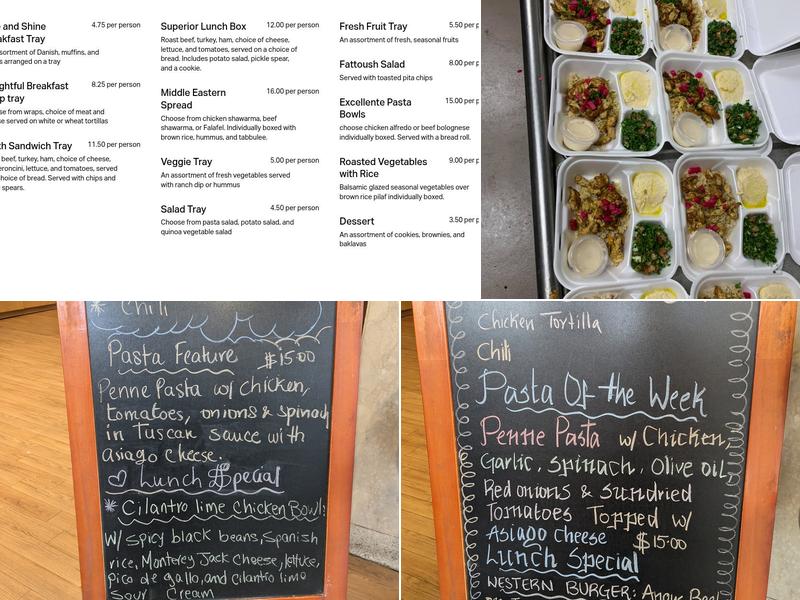 and Shine
Tray
4.75 per person
assortment of Danish, muffins, and
arranged on a tray
Breakfast
tray
8.25 per person
from wraps, choice of meat and
served on white or wheat tortillas
Sandwich Tray
11.50 per person
beef, turkey, ham, choice of cheese,
lettuce, and tomatoes, served
choice of bread. Served with chips and
spears.
Superior Lunch Box
12.00 per person
Roast beef, turkey, ham, choice of cheese,
lettuce, and tomatoes, served on a choice of
bread. Includes potato salad, pickle spear,
and a cookie.
Middle Eastern
Spread
16.00 per person
Choose from chicken shawarma, beef
shawarma, or Falafel. Individually boxed with
brown rice, hummus, and tabbulee.
Veggie Tray
5.00 per person
An assortment of fresh vegetables served
with ranch dip or hummus
Salad Tray
4.50 per person
Choose from pasta salad, potato salad, and
quinoa vegetable salad
Fresh Fruit Tray
5.50 per
An assortment of fresh, seasonal fruits
Fattoush Salad
8.00 per
Served with toasted pita chips
Excellente Pasta
Bowls
15.00 per
choose chicken alfredo or beef bolognese
individually boxed. Served with a bread roll.
Roasted Vegetables
with Rice
9.00 per
Balsamic glazed seasonal vegetables over
brown rice pilaf individually boxed.
Dessert
3.50 per
An assortment of cookies, brownies, and
baklavas
* Chili
Pasta Feature $15.00
Penne Pasta w/ chicken,
tomatoes, onions & spinach
in Tuscan sauce with
asiago cheese.
Lunch Special
* Cilantro lime Chicken Bowl:
w/ spicy black beans, Spanish
rice, Monterey Jack cheese, lettuce,
pico de gallo, and cilantro lime
Sour Cream
Chicken Tortilla
Chili
Pasta Of the Week
Penne Pasta w/ Chicken,
Garlic, spinach, Olive oil,
Red onions & sundried
Tomatoes Topped w/
Asiago cheese $15.00
Lunch Special
WESTERN BURGER: Angus Beef